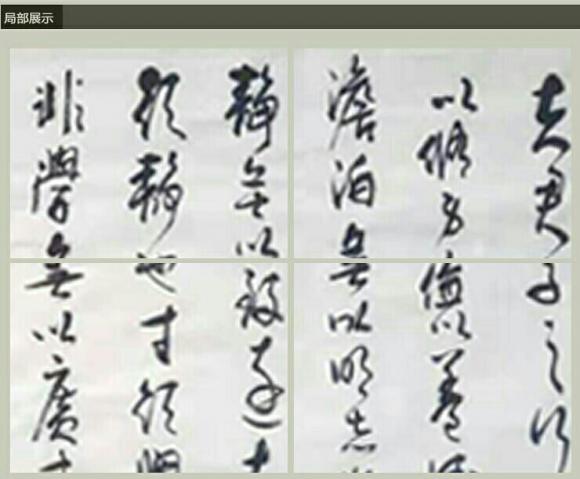 局部展示
夫君子之行
以脩身儉以養德
澹泊無以明志
靜無以致遠夫
須靜也才須學
非學無以廣才